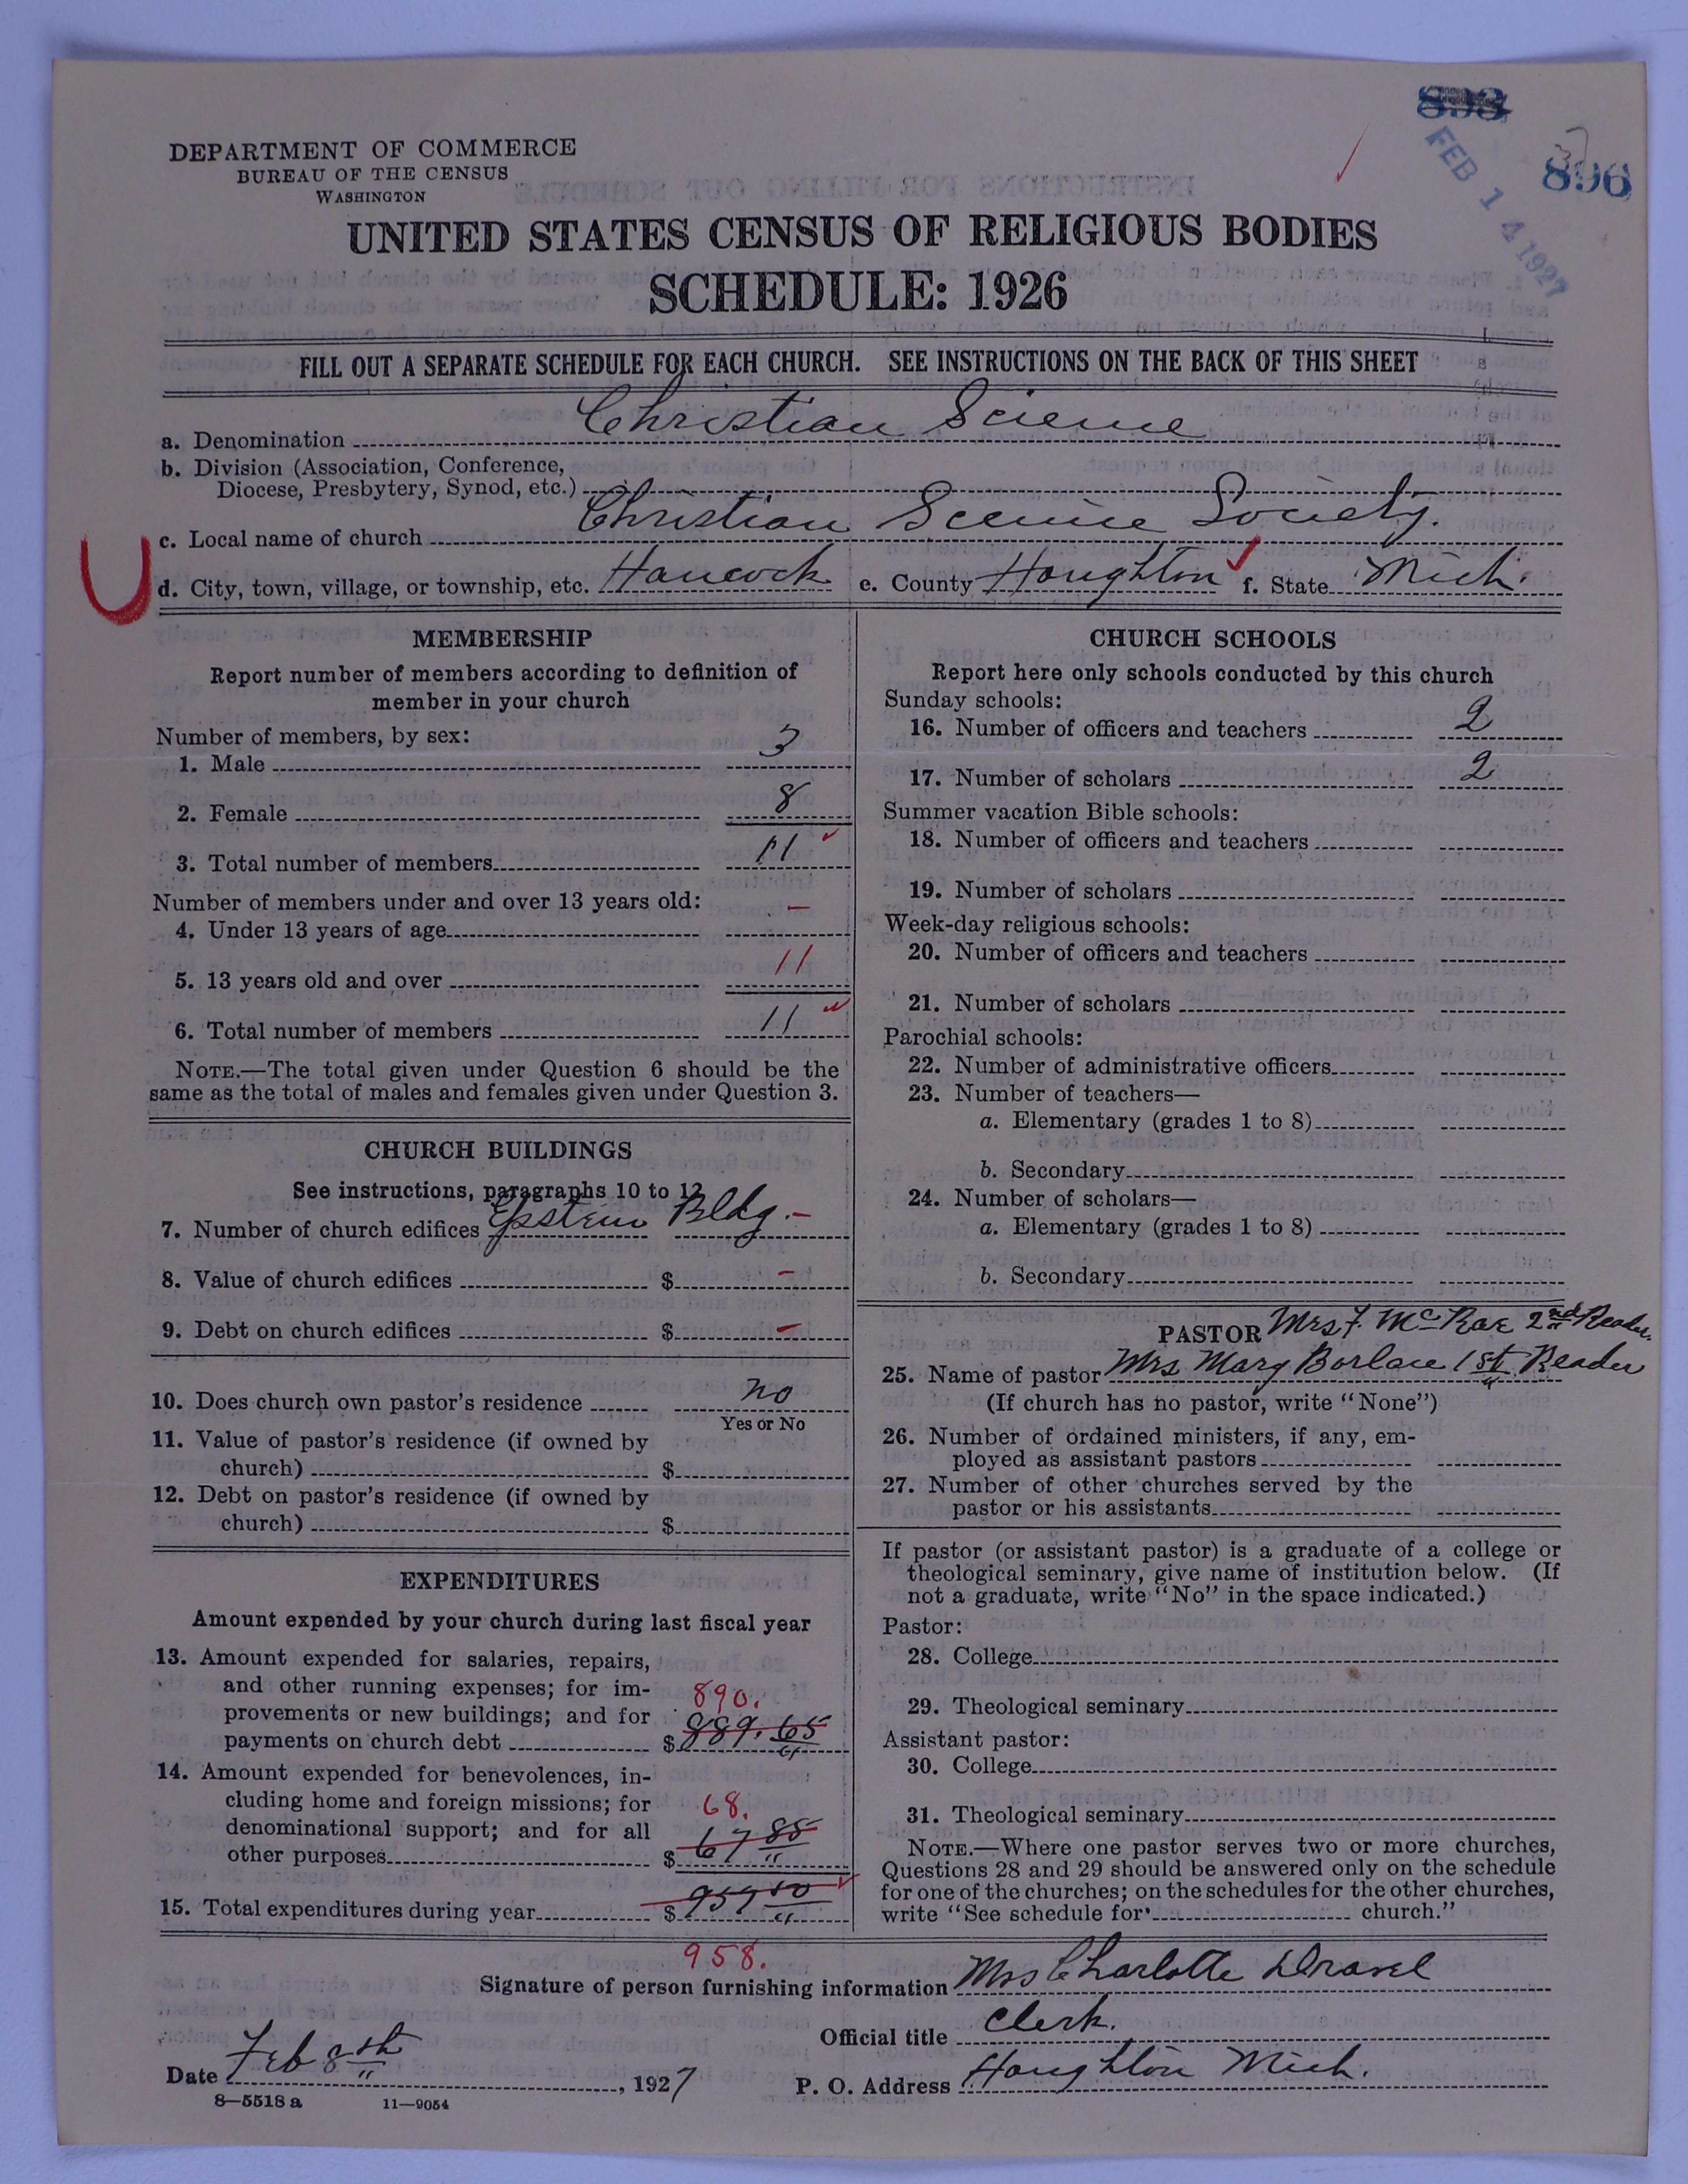 893
FEB 14 1927
896
DEPARTMENT OF COMMERCE
BUREAU OF THE CENSUS
WASHINGTON
UNITED STATES CENSUS OF RELIGIOUS BODIES
SCHEDULE: 1926
FILL OUT A SEPARATE SCHEDULE FOR EACH CHURCH. SEE INSTRUCTIONS ON THE BACK OF THIS SHEET
a. Denomination Christian Science
b. Division (Association, Conference,
Diocese, Presbytery, Synod, etc.)
c. Local name of church Christian Science Society.
d. City, town, village, or township, etc. Hancock e. County Houghton f. State Mich.
MEMBERSHIP
Report number of members according to definition of
member in your church
Number of members, by sex:
1. Male 3
2. Female 8
3. Total number of members 11
Number of members under and over 13 years old:
4. Under 13 years of age —
5. 13 years old and over 11
6. Total number of members 11
NOTE.—The total given under Question 6 should be the
same as the total of males and females given under Question 3.
CHURCH BUILDINGS
See instructions, paragraphs 10 to 12
7. Number of church edifices Epstein Bldg. —
8. Value of church edifices $ —
9. Debt on church edifices $ —
10. Does church own pastor's residence no
Yes or No
11. Value of pastor's residence (if owned by
church) $
12. Debt on pastor's residence (if owned by
church) $
EXPENDITURES
Amount expended by your church during last fiscal year
13. Amount expended for salaries, repairs,
and other running expenses; for im-
provements or new buildings; and for
890.
payments on church debt $ 889.65
14. Amount expended for benevolences, in-
cluding home and foreign missions; for
68.
denominational support; and for all
other purposes $ 67 85
15. Total expenditures during year $ 957 50
958.
CHURCH SCHOOLS
Report here only schools conducted by this church
Sunday schools:
16. Number of officers and teachers 2
17. Number of scholars 2
Summer vacation Bible schools:
18. Number of officers and teachers
19. Number of scholars
Week-day religious schools:
20. Number of officers and teachers
21. Number of scholars
Parochial schools:
22. Number of administrative officers
23. Number of teachers—
a. Elementary (grades 1 to 8)
b. Secondary
24. Number of scholars—
a. Elementary (grades 1 to 8)
b. Secondary
PASTOR Mrs F. McRae 2nd Reader
25. Name of pastor Mrs Mary Borlace 1st Reader
(If church has no pastor, write "None")
26. Number of ordained ministers, if any, em-
ployed as assistant pastors
27. Number of other churches served by the
pastor or his assistants
If pastor (or assistant pastor) is a graduate of a college or
theological seminary, give name of institution below. (If
not a graduate, write "No" in the space indicated.)
Pastor:
28. College
29. Theological seminary
Assistant pastor:
30. College
31. Theological seminary
NOTE.—Where one pastor serves two or more churches,
Questions 28 and 29 should be answered only on the schedule
for one of the churches; on the schedules for the other churches,
write "See schedule for church."
Signature of person furnishing information Mrs Charlotte
Official title Clerk.
Date Feb 8th, 1927
P. O. Address Houghton Mich.
8—5518 a 11—9054